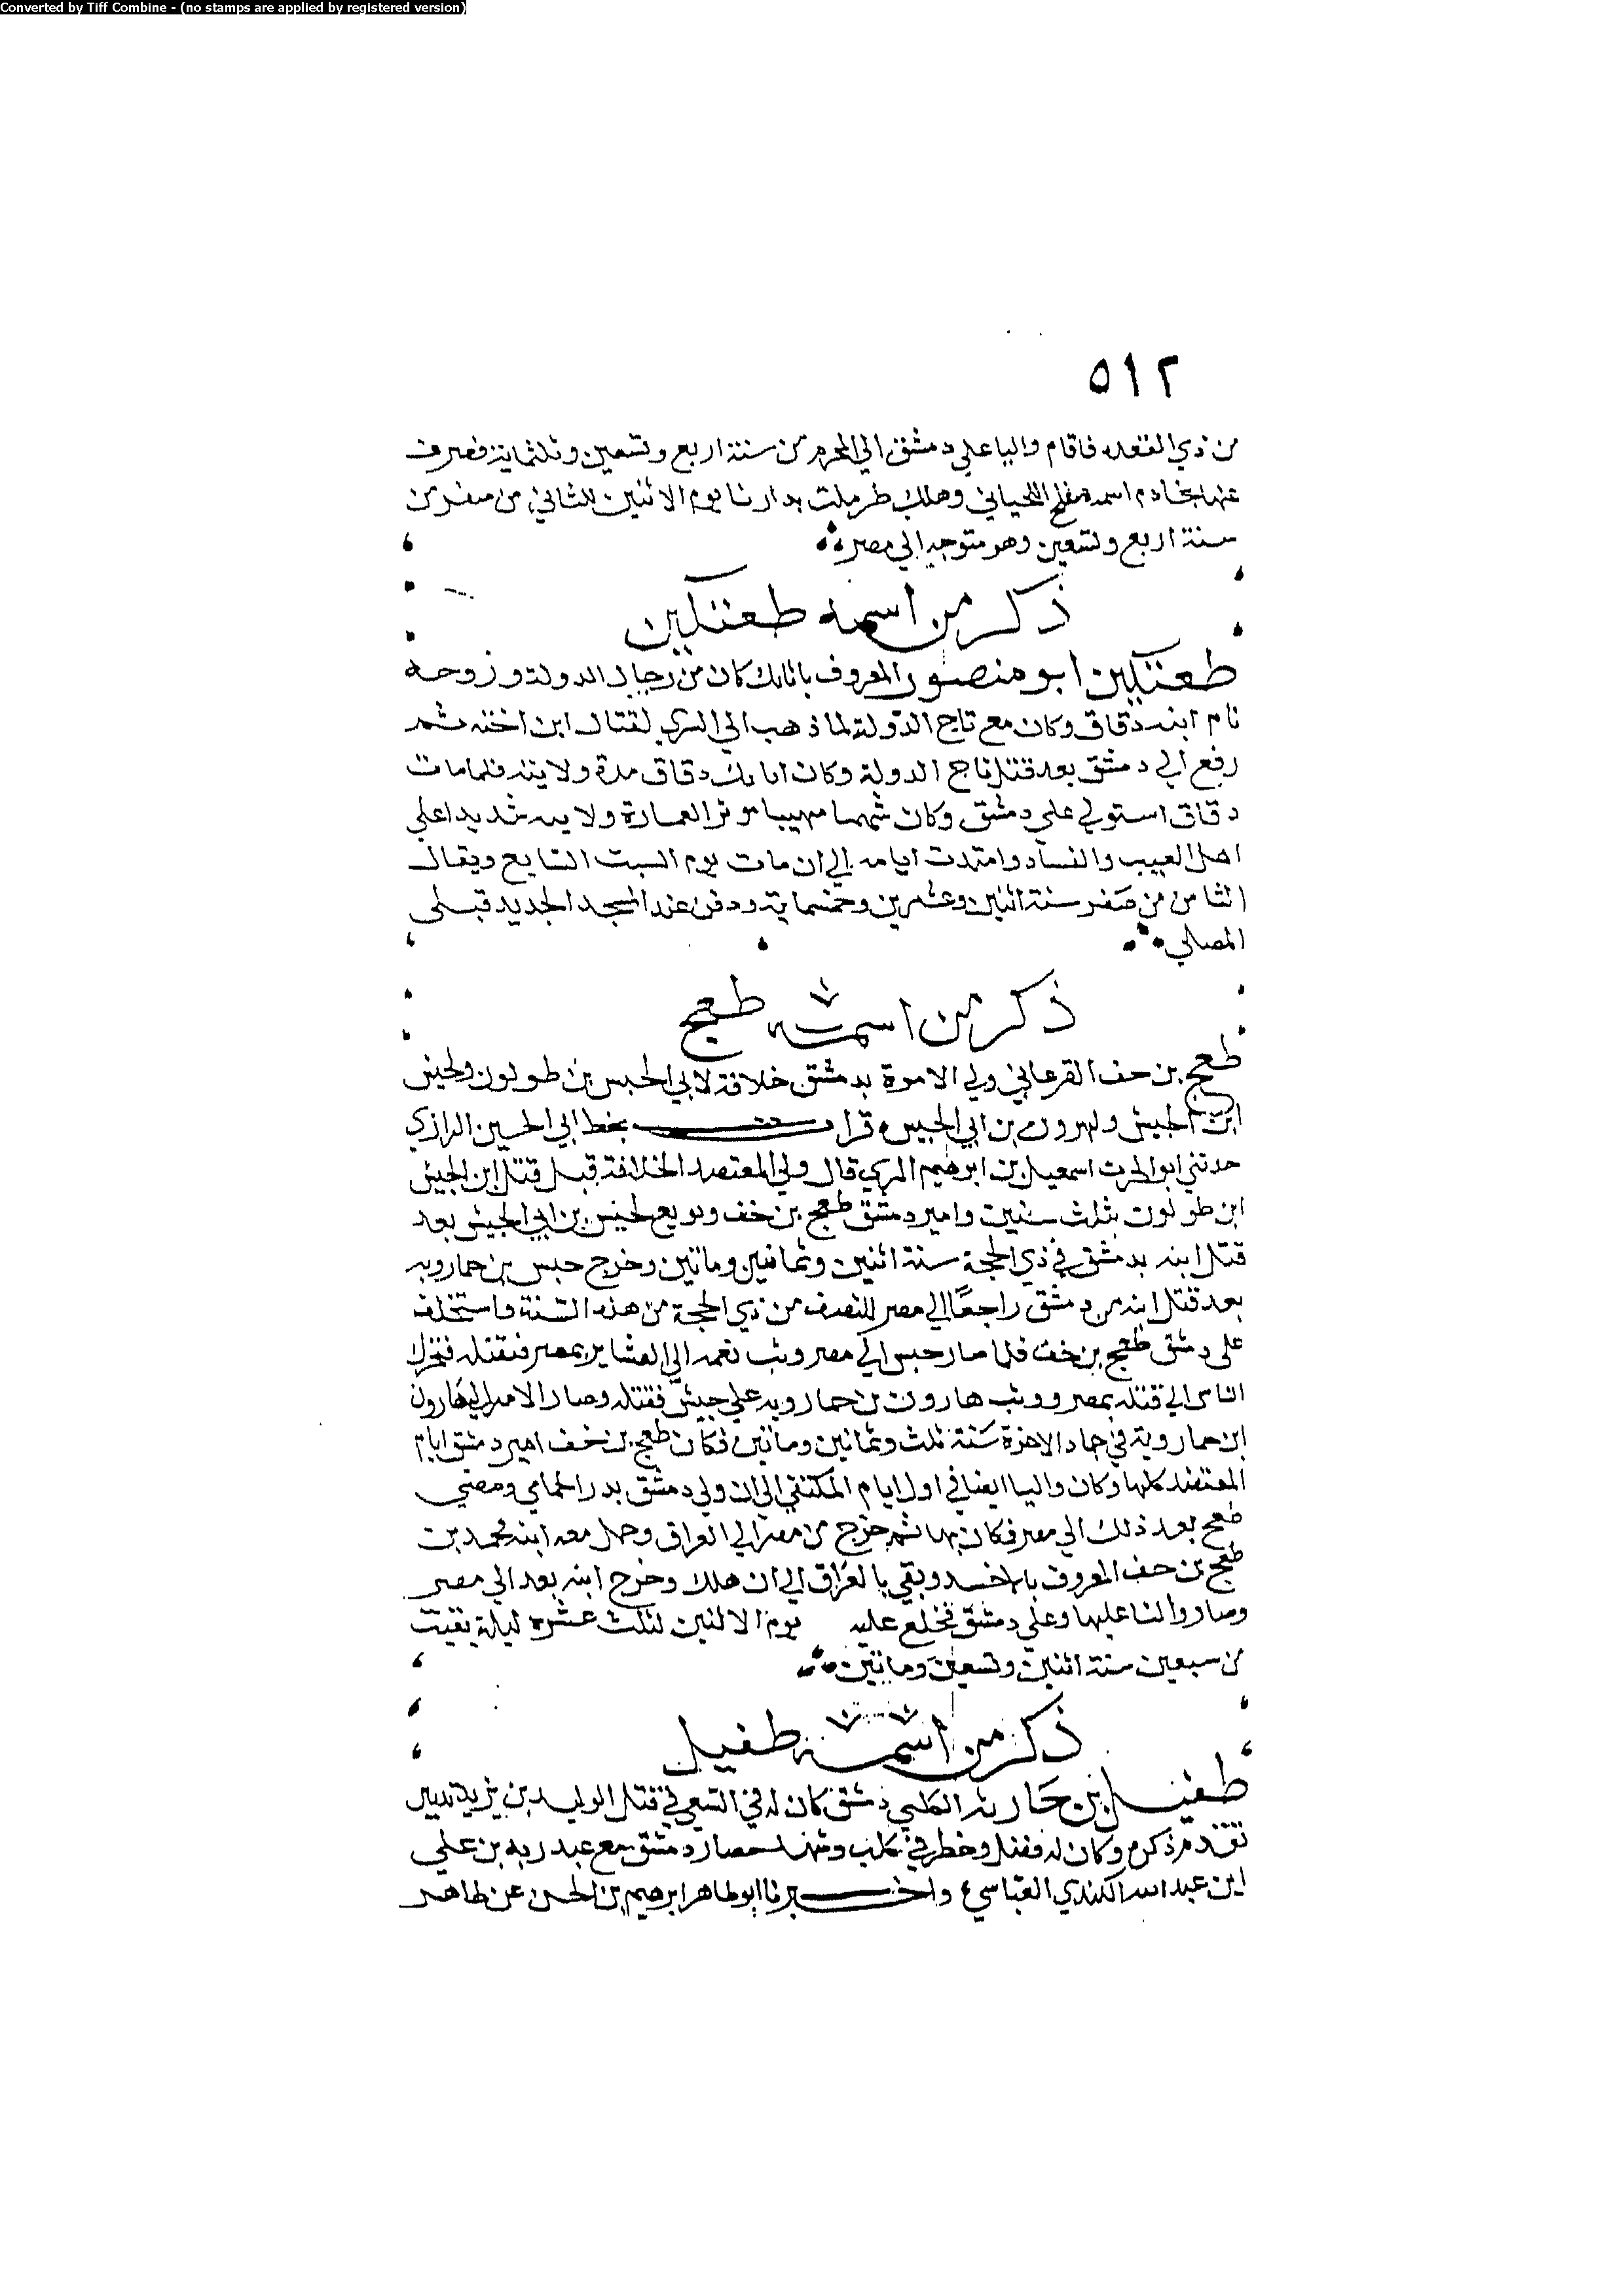 Converted by Tiff Combine - (no stamps are applied by registered version)
٥١٢
من ذي القعده فاقام واليا علي دمشق الي المحرم من سنة اربع وتسعين وثلثماية فصرف
عنها بخادم اسمه مفلح اللحياني وهلك طرملت بداريا يوم الاثنين للثاني من صفر من
سنة اربع وتسعين وهو متوجه الي مصر
ذكر من اسمه طغتكين
طغتكين ابو منصور المعروف باتابك كان من رجال الدولة وزوجه
بام ابنه دقاق وكان مع تاج الدولة لما ذهب الي الري لقتال ابن اخيه ثم
رفع الي دمشق بعد قتل تاج الدولة وكان اتابك دقاق مدة ولايته فلما مات
دقاق استولي علي دمشق وكان شهما مهيبا موثر العمارة ولايته شديدا علي
اهل العيب والفساد وامتدت ايامه الي ان مات يوم السبت السابع ويقال
الثامن من صفر سنة اثنين وعشرين وخمسماية ودفن عند المسجد الجديد قبلي
المصلي
ذكر من اسمه طغج
طغج بن حف الفرغاني ولي الامرة بدمشق خلافة لابي الجيش بن طولون ولجيش
ابن ابي الجيش ولهرون بن ابي الجيش قرات بخط ابي الحسين الرازي
حدثني ابو الحرث اسمعيل بن ابرهيم المري قال ولي المعتضد الخلافة قبل قتل ابن الجيش
ابن طولون بثلث سنين وامير دمشق طغج بن خف وبويع لجيش بن ابي الجيش بعد
قتل ابيه بدمشق في ذي الحجة سنة اثنين وثمانين وماتين وخرج جيش بن خمارويه
بعد قتل ابيه من دمشق راجعا الي مصر للنصف من ذي الحجة من هذه السنة واستخلف
علي دمشق طغج بن خف فلما صار جيش الي مصر وثب بعمه ابي العشاير بمصر فقتله فتحرك
الناس الي قتله بمصر ووثب هارون بن خمارويه علي جيش فقتله وصار الامر الي هارون
ابن خمارويه في جماد الاخرة سنة ثلث وثمانين وماتين فكان طغج بن خف امير دمشق ايام
المعتضد كلها وكان واليا ايضا في اول ايام المكتفي الي ان ولي دمشق بدر الحمامي ومضي
طغج بعد ذلك الي مصر فكان بها ثم خرج من مصر الي العراق وحمل معه ابنه محمد بن
طغج بن حف المعروف بالاخشيد وبقي بالعراق الي ان هلك وخرج ابنه بعد الي مصر
وصار واليا عليها وعلي دمشق فخلع عليه يوم الاثنين لثلث عشرة ليلة بقيت
من سبعين سنة اثنين وتسعين وماتين
ذكر من اسمه طفيل
طفيل بن حارثه الكلبي دمشق كان له في السعي في قتل الوليد بن يزيد تدبير
تقدم ذكره وكان له فضل وخطر في كلب وشهد حصار دمشق مع عبد ربه بن علي
ابن عبد الله الكندي العباسي واخبرنا ابو طاهر ابرهيم بن الحسن عن طاهر